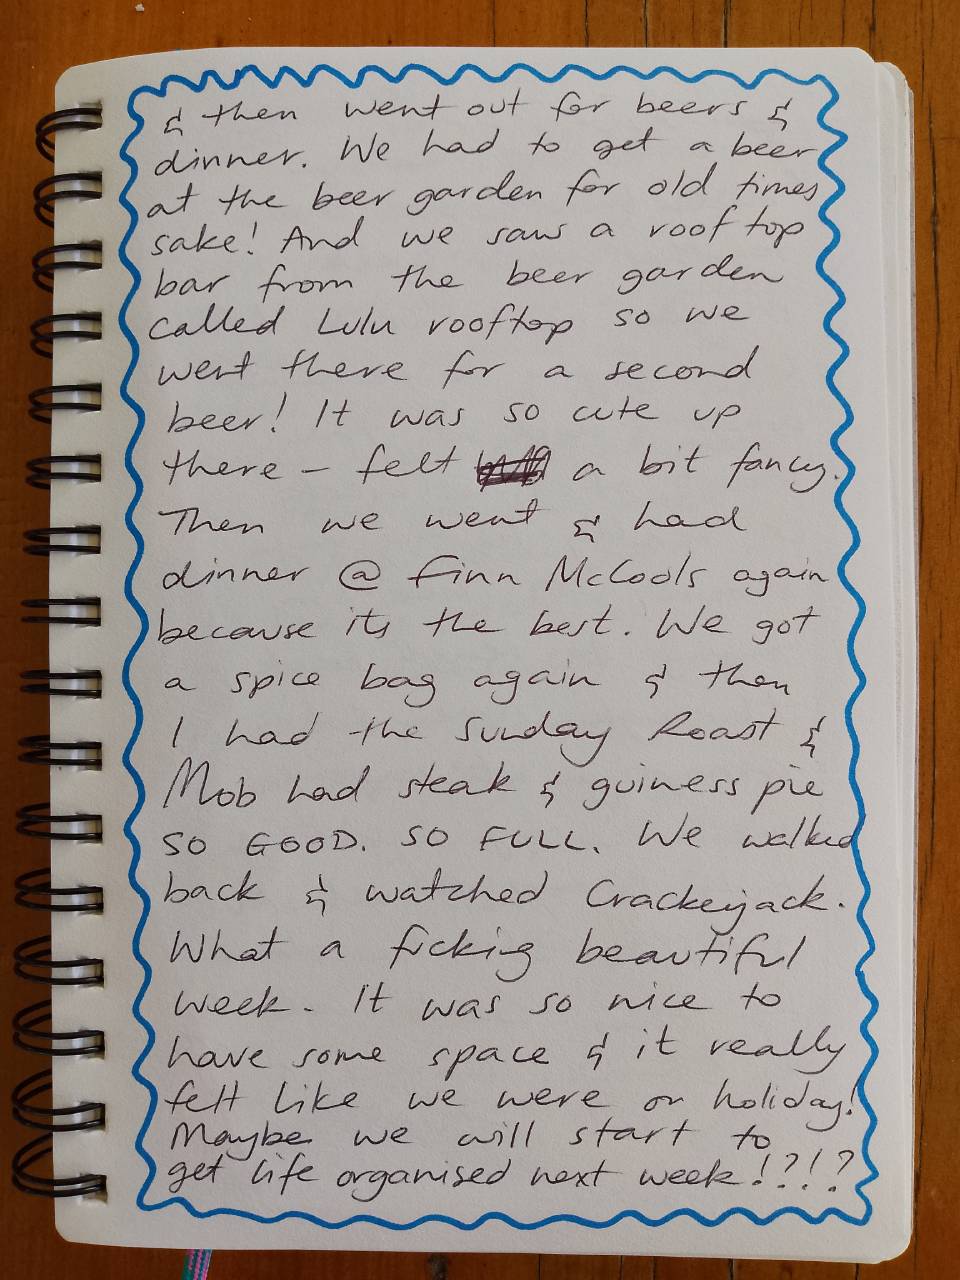 & then went out for beers &
dinner. We had to get a beer
at the beer garden for old times
sake! And we saw a rooftop
bar from the beer garden
called Lulu rooftop so we
went there for a second
beer! It was so cute up
there – felt a bit fancy.
Then we went & had
dinner @ Finn McCools again
because its the best. We got
a spice bag again & then
I had the Sunday Roast &
Mob had steak & guiness pie
SO GOOD. SO FULL. We walked
back & watched Crackerjack.
What a fucking beautiful
week. It was so nice to
have some space & it really
felt like we were on holiday!
Maybe we will start to
get life organised next week!?!?